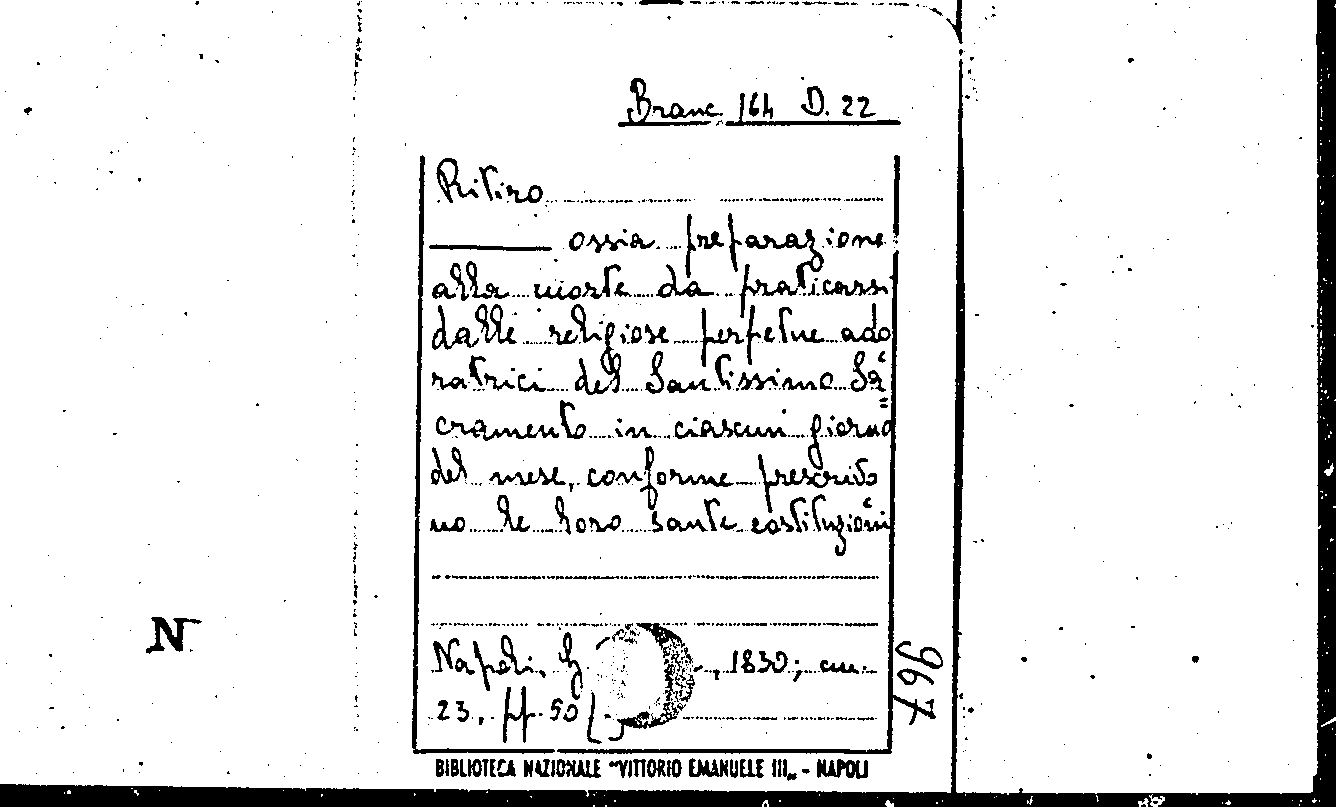 Branc. 164 D. 22
Ritiro
ossia preparazione
alla morte da praticarsi
dalle religiose perpetue ado
ratrici del Santissimo Sa=
cramento in ciascun giorno
del mese, conforme prescrivo
no le loro sante costituzioni
Napoli, , 1830; cm.
23, pp. 50
967
N
BIBLIOTECA NAZIONALE "VITTORIO EMANUELE III„ - NAPOLI